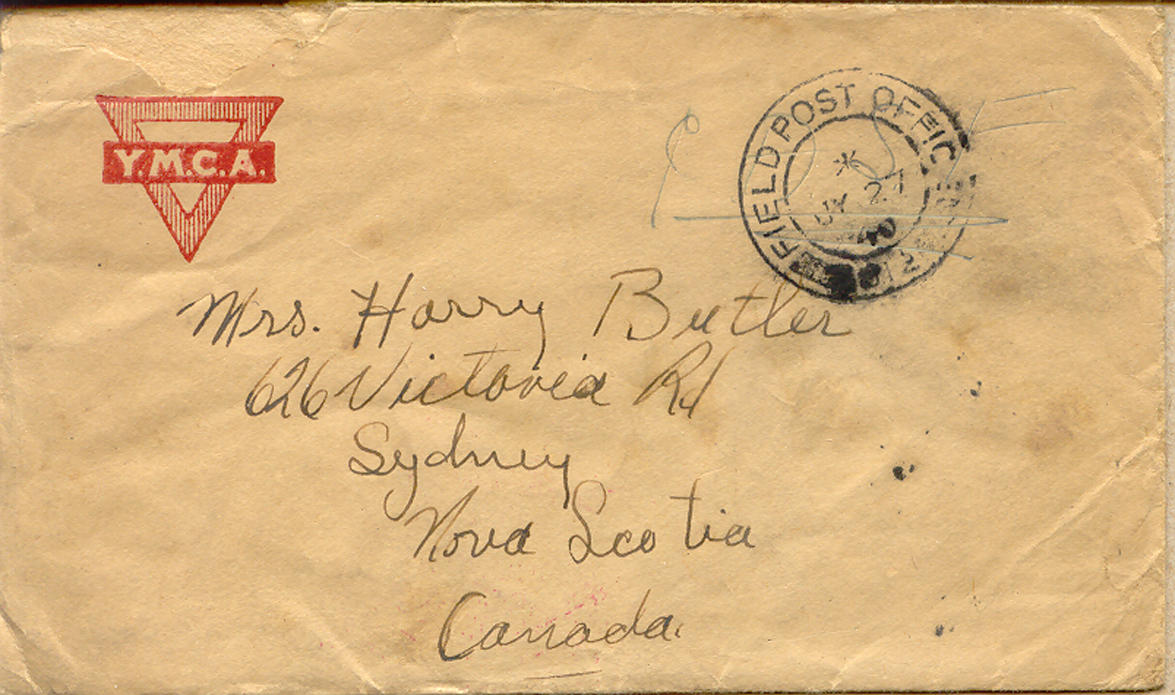 Y.M.C.A.
FIELD POST OFFICE
*
JY 27
40
Mrs. Harry Butler
626 Victoria Rd
Sydney
Nova Scotia
Canada.